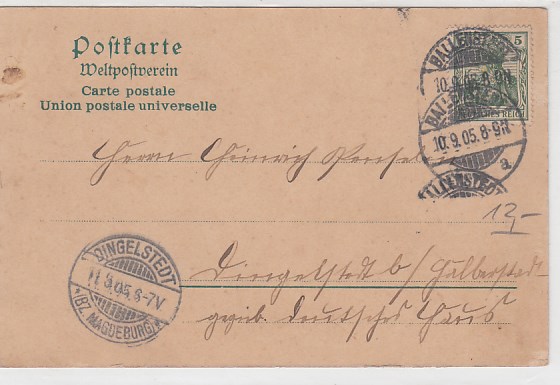 Postkarte
Weltpostverein
Carte postale
Union postale universelle
5
DEUTSCHES REICH
BALLENSTEDT
10.9.05.8-9N
BALLENSTEDT
10.9.05.8-9N
a
BALLENSTEDT
Herrn Heinrich
12,-
DINGELSTEDT
11.9.05.6-7V
* (BZ. MAGDEBURG) *
Dingelstedt b/ Halberstedt
deutsches Haus